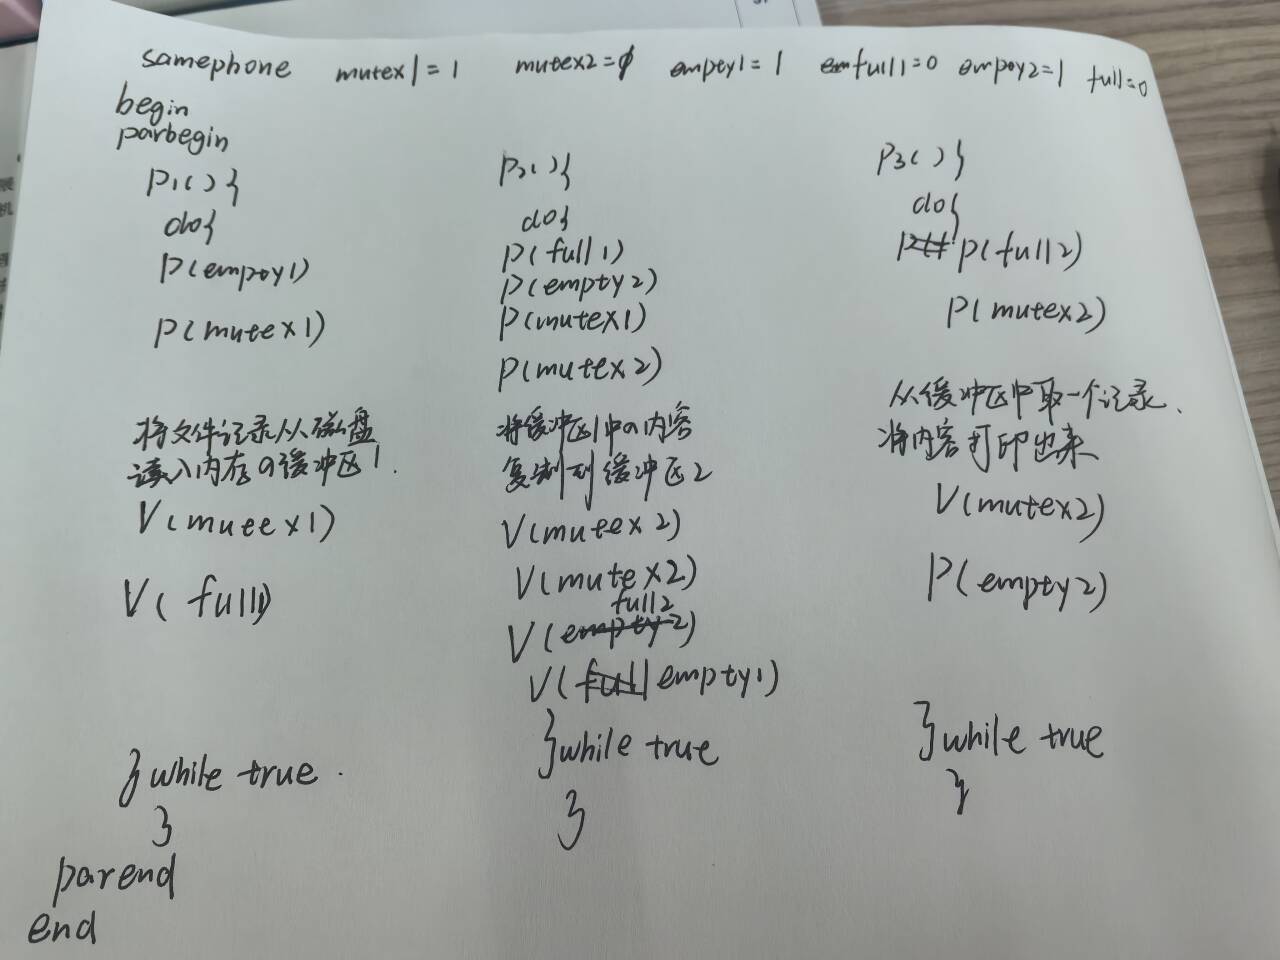 samephone mutex1=1 mutex2=1 empty1=1 full1=0 empoy2=1 full=0
begin
parbegin
P1(){
do{
P(empoy1)
P(mutex1)
将文件记录从磁盘
读入内存の缓冲区1.
V(mutex1)
V(full1)
}while true.
}
P2(){
do{
P(full1)
P(empty2)
P(mutex1)
P(mutex2)
将缓冲区1中の内容
复制到缓冲区2
V(mutex2)
V(mutex2)
V(full2)
V(empty1)
}while true
}
P3(){
do{
P(full2)
P(mutex2)
从缓冲区中取一个记录、
将内容打印出来
V(mutex2)
P(empty2)
}while true
}
parend
end